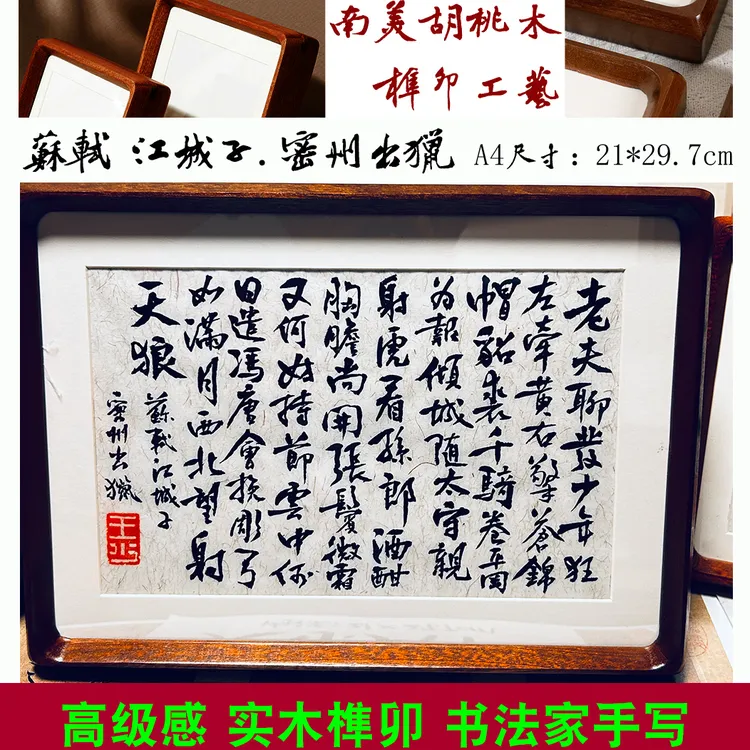 南美胡桃木
榫卯工藝
蘇軾 江城子.密州出獵 A4尺寸：21*29.7cm
老夫聊發少年狂
左牽黃右擎蒼錦
帽貂裘千騎卷平岡
為報傾城隨太守親
射虎看孫郎酒酣
胸膽尚開張鬢微霜
又何妨持節雲中何
日遣馮唐會挽彫弓
如滿月西北望射
天狼
蘇軾江城子
密州出獵
高级感 实木榫卯 书法家手写